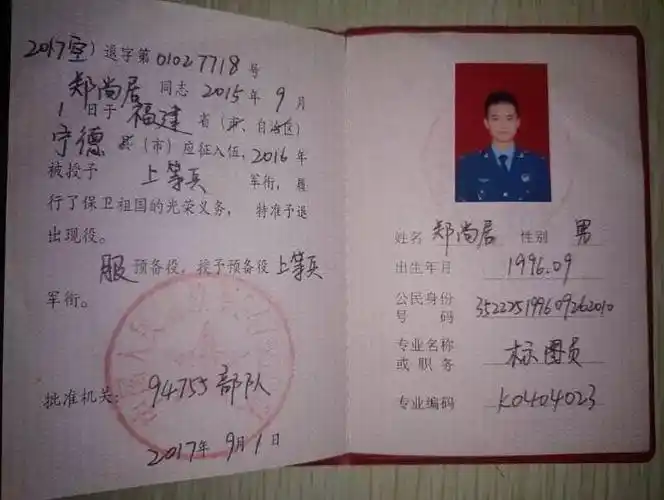 2017(空)退字第01027718号
郑尚居 同志 2015年9月
1日于 福建 省(市、自治区)
宁德 县(市)应征入伍,2016年
被授予 上等兵 军衔,履
行了保卫祖国的光荣义务,特准予退
出现役。
服 预备役,授予预备役 上等兵
军衔。
批准机关:94755部队
2017年9月1日
姓名 郑尚居 性别 男
出生年月 1996.09
公民身份
号码 352225199609262010
专业名称
或职务 标图员
专业编码 K0404023